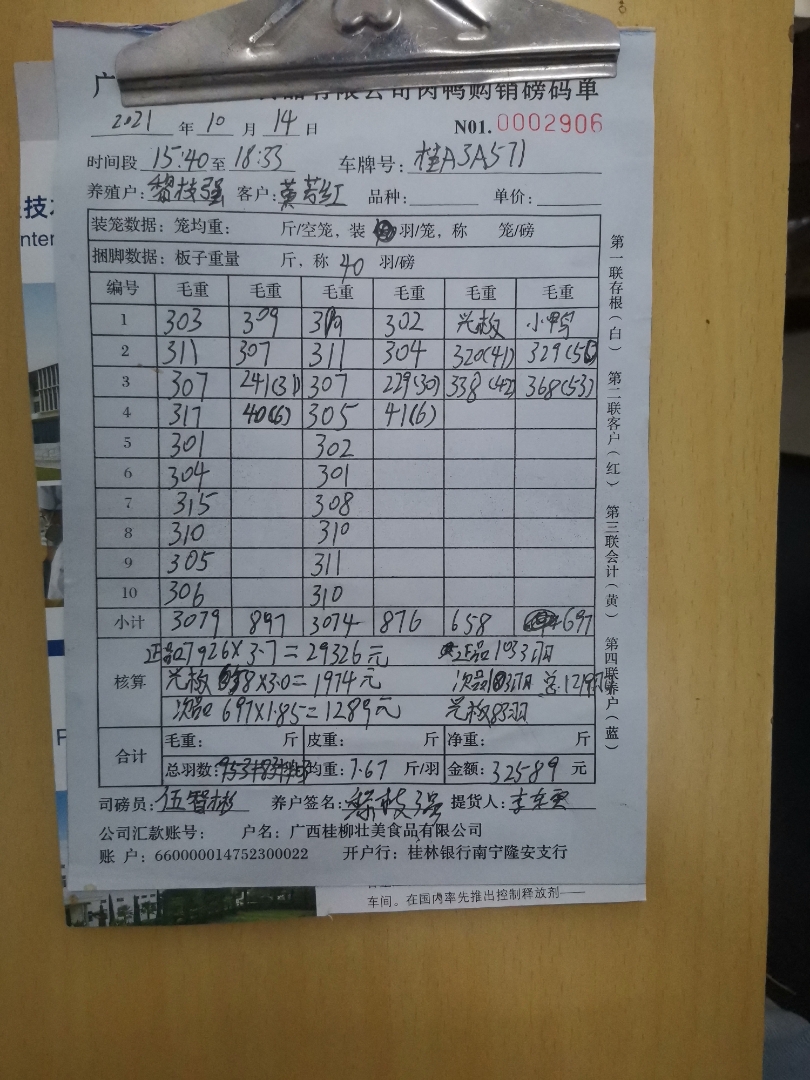 广 有限公司肉鸭购销磅码单
2021 年 10 月 14 日 N01. 0002906
时间段 15:40 至 18:33 车牌号: 桂A3A571
养殖户: 黎枝强 客户: 黄 红 品种: 单价:
装笼数据: 笼均重: 斤/空笼, 装 羽/笼, 称 笼/磅
捆脚数据: 板子重量 斤, 称 40 羽/磅
编号 毛重 毛重 毛重 毛重 毛重 毛重
1 303 309 302 光板 小鸭
2 311 307 311 304 320(41) 329
3 307 241(31) 307 229(30) 338(42) 368(53)
4 317 40(6) 305 41(6)
5 301 302
6 304 301
7 315 308
8 310 310
9 305 311
10 306 310
小计 3079 897 3074 876 658 697
核算
正品 7926×3.7=29326元 正品1033羽
光板 658×3.0=1974元 次品103羽 总:1219羽
次品 697×1.85=1289元 光板83羽
合计
毛重: 斤 皮重: 斤 净重: 斤
总羽数: 均重: 7.67 斤/羽 金额: 32589 元
司磅员: 伍智彬 养户签名: 黎枝强 提货人:
公司汇款账号: 户名: 广西桂柳壮美食品有限公司
账 户: 660000014752300022 开户行: 桂林银行南宁隆安支行
第一联存根(白) 第二联客户(红) 第三联会计(黄) 第四联养户(蓝)
技
nter
车间。在国内率先推出控制释放剂——